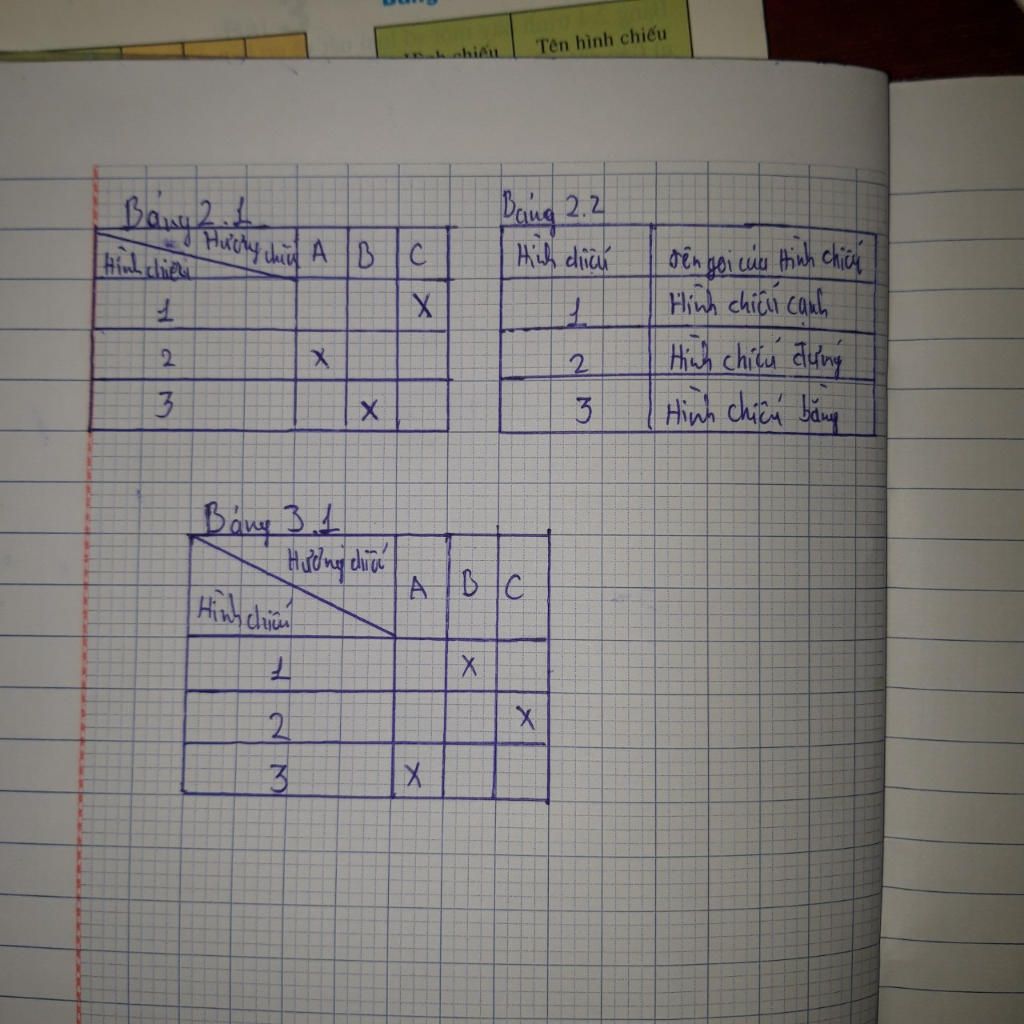 Bảng
Hình chiếu Tên hình chiếu
Bảng 2.1
Hướng chiếu A B C
Hình chiếu
1 X
2 X
3 X
Bảng 2.2
Hình chiếu Tên gọi của Hình chiếu
1 Hình chiếu cạnh
2 Hình chiếu đứng
3 Hình chiếu bằng
Bảng 3.1
Hướng chiếu A B C
Hình chiếu
1 X
2 X
3 X